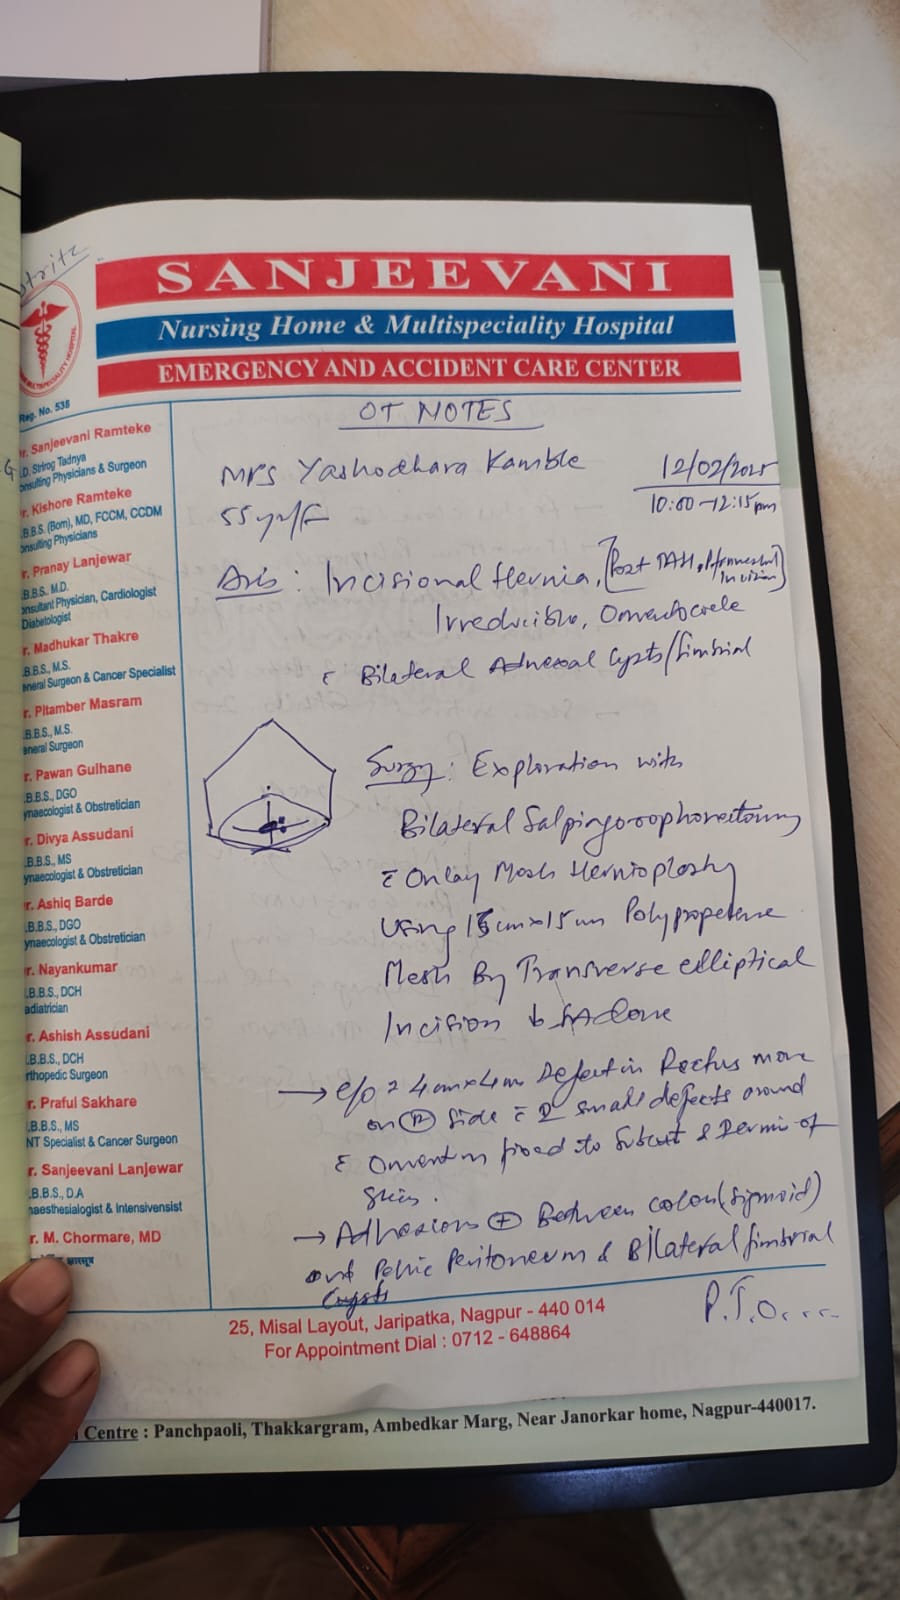 stritz
SANJEEVANI
Nursing Home & Multispeciality Hospital
EMERGENCY AND ACCIDENT CARE CENTER
Reg. No. 538
OT NOTES
Mrs Yashodhara Kamble
12/02/2025
55 yr/F
10:00-12:15pm
: Incisional Hernia, [Post TAH, Incision]
Irreducible, Omentocele
c̄ Bilateral Adnexal Cysts/fimbrial
Surgy: Exploration with
Bilateral Salpingooophorectomy
c̄ Onlay Mesh Hernioplasty
Using 15cmx15cm Polypropelene
Mesh By Transverse elliptical
Incision
→ e/o 4cmx4cm Defect in Rectus more
on (R) side c̄ 2 small defects around
c̄ Omentum fixed to Subcut & Dermis of
Skin.
→ Adhesions ⊕ Between colon (sigmoid)
and Pelvic Peritoneum & Bilateral fimbrial
Cysts
P.T.O....
r. Sanjeevani Ramteke
.D. Strirog Tadnya
onsulting Physicians & Surgeon
r. Kishore Ramteke
.B.B.S. (Bom), MD, FCCM, CCDM
onsulting Physicians
r. Pranay Lanjewar
.B.B.S. M.D.
onsultant Physician, Cardiologist
Diabetologist
r. Madhukar Thakre
.B.B.S., M.S.
eneral Surgeon & Cancer Specialist
r. Pitamber Masram
.B.B.S., M.S.
eneral Surgeon
r. Pawan Gulhane
.B.B.S., DGO
ynaecologist & Obstretician
r. Divya Assudani
.B.B.S., MS
ynaecologist & Obstretician
r. Ashiq Barde
.B.B.S., DGO
ynaecologist & Obstretician
r. Nayankumar
.B.B.S., DCH
adiatrician
r. Ashish Assudani
.B.B.S., DCH
rthopedic Surgeon
r. Praful Sakhare
.B.B.S., MS
NT Specialist & Cancer Surgeon
r. Sanjeevani Lanjewar
.B.B.S., D.A
naesthesialogist & Intensivensist
r. M. Chormare, MD
25, Misal Layout, Jaripatka, Nagpur - 440 014
For Appointment Dial : 0712 - 648864
Centre : Panchpaoli, Thakkargram, Ambedkar Marg, Near Janorkar home, Nagpur-440017.